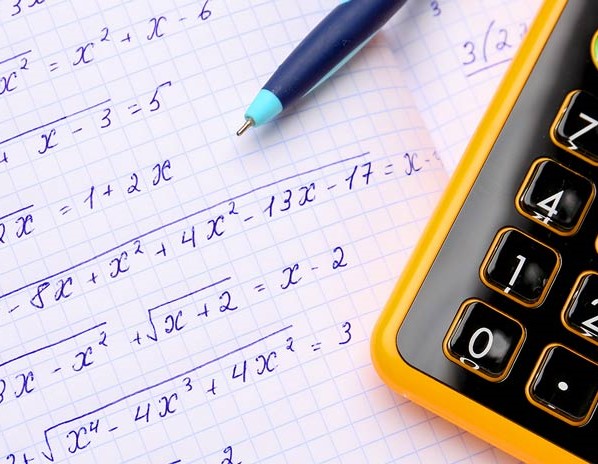 x² = x² + x - 6
+ x - 3 = 5
2x = 1 + 2x
- 8x + x² + 4x² - 13x - 17 = x -
3x - x² + √x + 2 = x - 2
+ √x⁴ - 4x³ + 4x² = 3
2
3(2
7
4
1
2
0
.